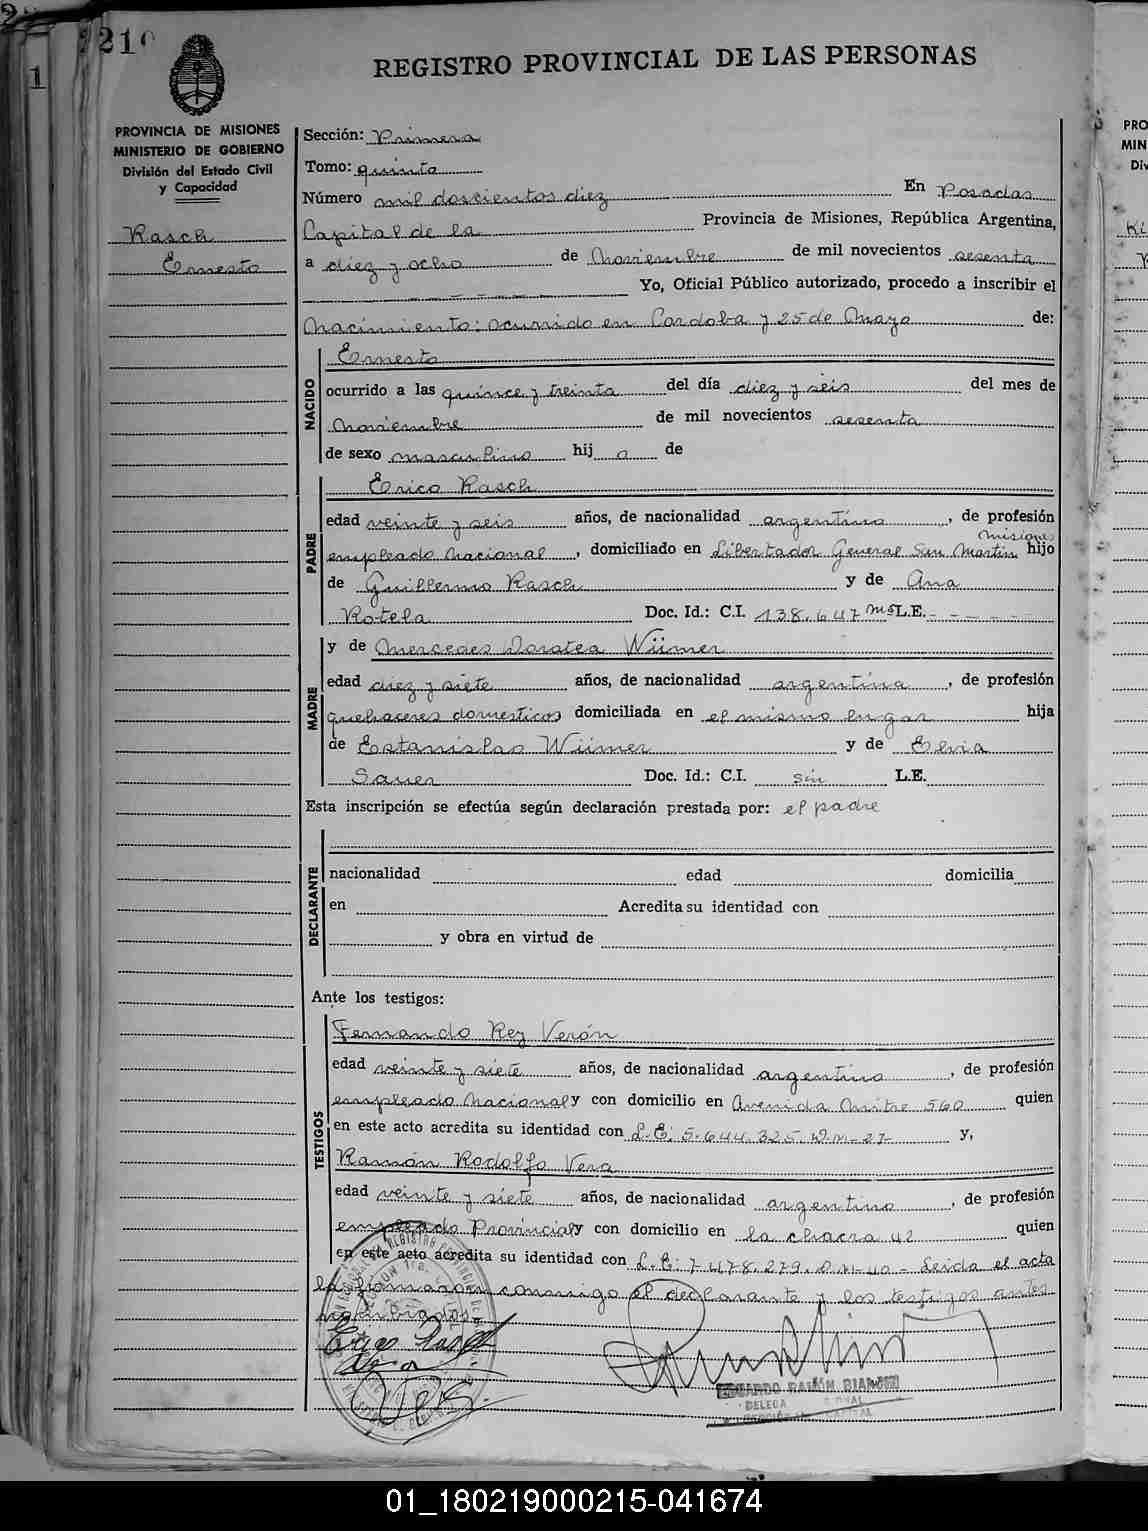 REGISTRO PROVINCIAL DE LAS PERSONAS
PROVINCIA DE MISIONES
MINISTERIO DE GOBIERNO
División del Estado Civil
y Capacidad
Rasch
Ernesto
Sección: Primera
Tomo: quinto
Número mil doscientos diez En Posadas
Capital de la Provincia de Misiones, República Argentina,
a diez y ocho de Noviembre de mil novecientos sesenta
Yo, Oficial Público autorizado, procedo a inscribir el
Nacimiento: ocurrido en Cordoba y 25 de Mayo de:
NACIDO
Ernesto
ocurrido a las quince y treinta del día diez y seis del mes de
Noviembre de mil novecientos sesenta
de sexo masculino hij o de
PADRE
Erico Rasch
edad veinte y seis años, de nacionalidad argentino, de profesión
empleado Nacional, domiciliado en Libertador General San Martin Misiones hijo
de Guillermo Rasch y de Ana
Rotela Doc. Id.: C.I. 138.647 Ms L.E. - - - - -
MADRE
y de Mercedes Doratea Wiimer
edad diez y siete años, de nacionalidad argentina, de profesión
quehaceres domesticos domiciliada en el mismo lugar hija
de Estanislao Wiimer y de Elvia
Sauer Doc. Id.: C.I. sin L.E.
Esta inscripción se efectúa según declaración prestada por: el padre
DECLARANTE
nacionalidad edad domicilia
en Acredita su identidad con
y obra en virtud de
Ante los testigos:
TESTIGOS
Fernando Rey Verón
edad veinte y siete años, de nacionalidad argentino, de profesión
empleado Nacional y con domicilio en Avenida Mitre 560 quien
en este acto acredita su identidad con L.E: 5.644.325 D.M-27- y,
Ramón Rodolfo Vera
edad veinte y siete años, de nacionalidad argentino, de profesión
empleado Provincial y con domicilio en la chacra 42 quien
en este acto acredita su identidad con L.E: 7.478.279. D.M-40- Leida el acta
la firmaron conmigo el declarante y los testigos antes
Erico Rasch
EDUARDO RAMÓN BIANCHI
01_180219000215-041674